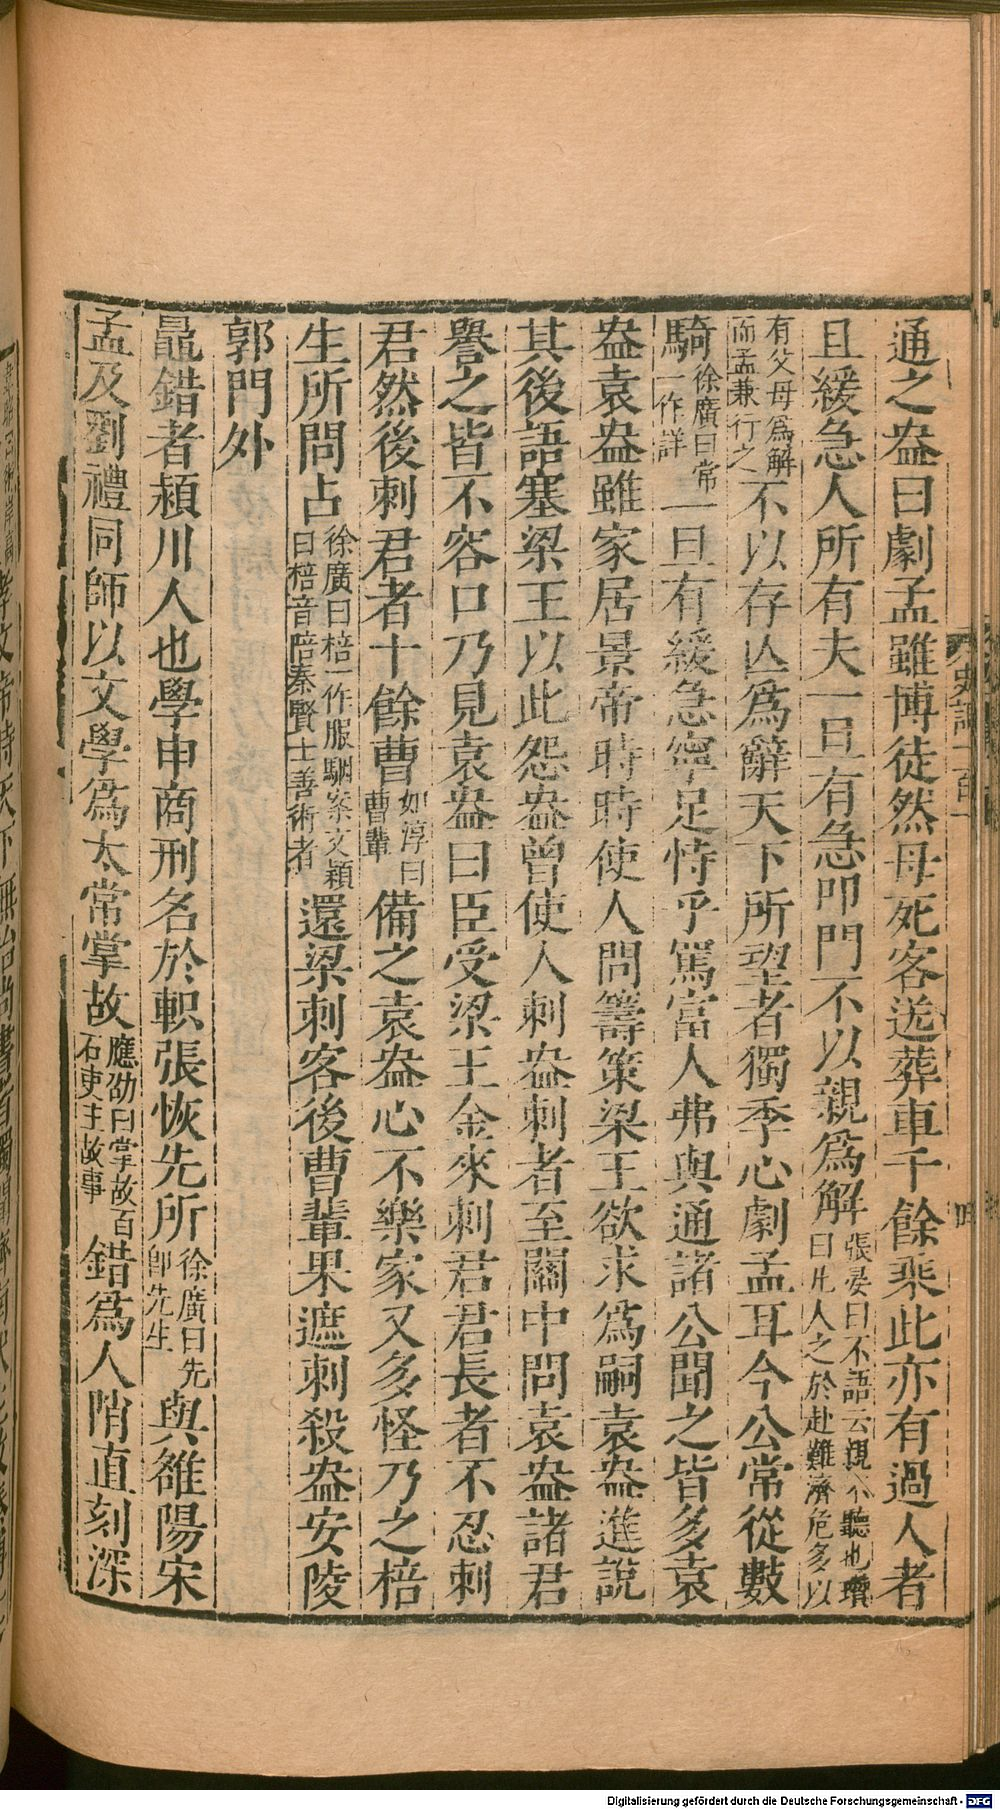 通之盎曰劇孟雖博徒然母死客送葬車千餘乘此亦有過人者
且緩急人所有夫一旦有急叩門不以親爲解張晏曰不語云親不聽也瓚曰凡人之於赴難濟危多以
有父母爲解而孟兼行之不以存亡爲辭天下所望者獨季心劇孟耳今公常從數
騎徐廣曰常一作詳一旦有緩急寧足恃乎罵富人弗與通諸公聞之皆多袁
盎袁盎雖家居景帝時時使人問籌策梁王欲求爲嗣袁盎進說
其後語塞梁王以此怨盎曾使人刺盎刺者至關中問袁盎諸君
譽之皆不容口乃見袁盎曰臣受梁王金來刺君君長者不忍刺
君然後刺君者十餘曹如淳曰曹輩備之袁盎心不樂家又多怪乃之棓
生所問占徐廣曰棓一作服駰案文穎曰棓音陪秦賢士善術者還梁刺客後曹輩果遮刺殺盎安陵
郭門外
鼂錯者潁川人也學申商刑名於軹張恢先所徐廣曰先即先生與雒陽宋
孟及劉禮同師以文學爲太常掌故應劭曰掌故百石吏主故事錯爲人陗直刻深
Digitalisierung gefördert durch die Deutsche Forschungsgemeinschaft - DFG